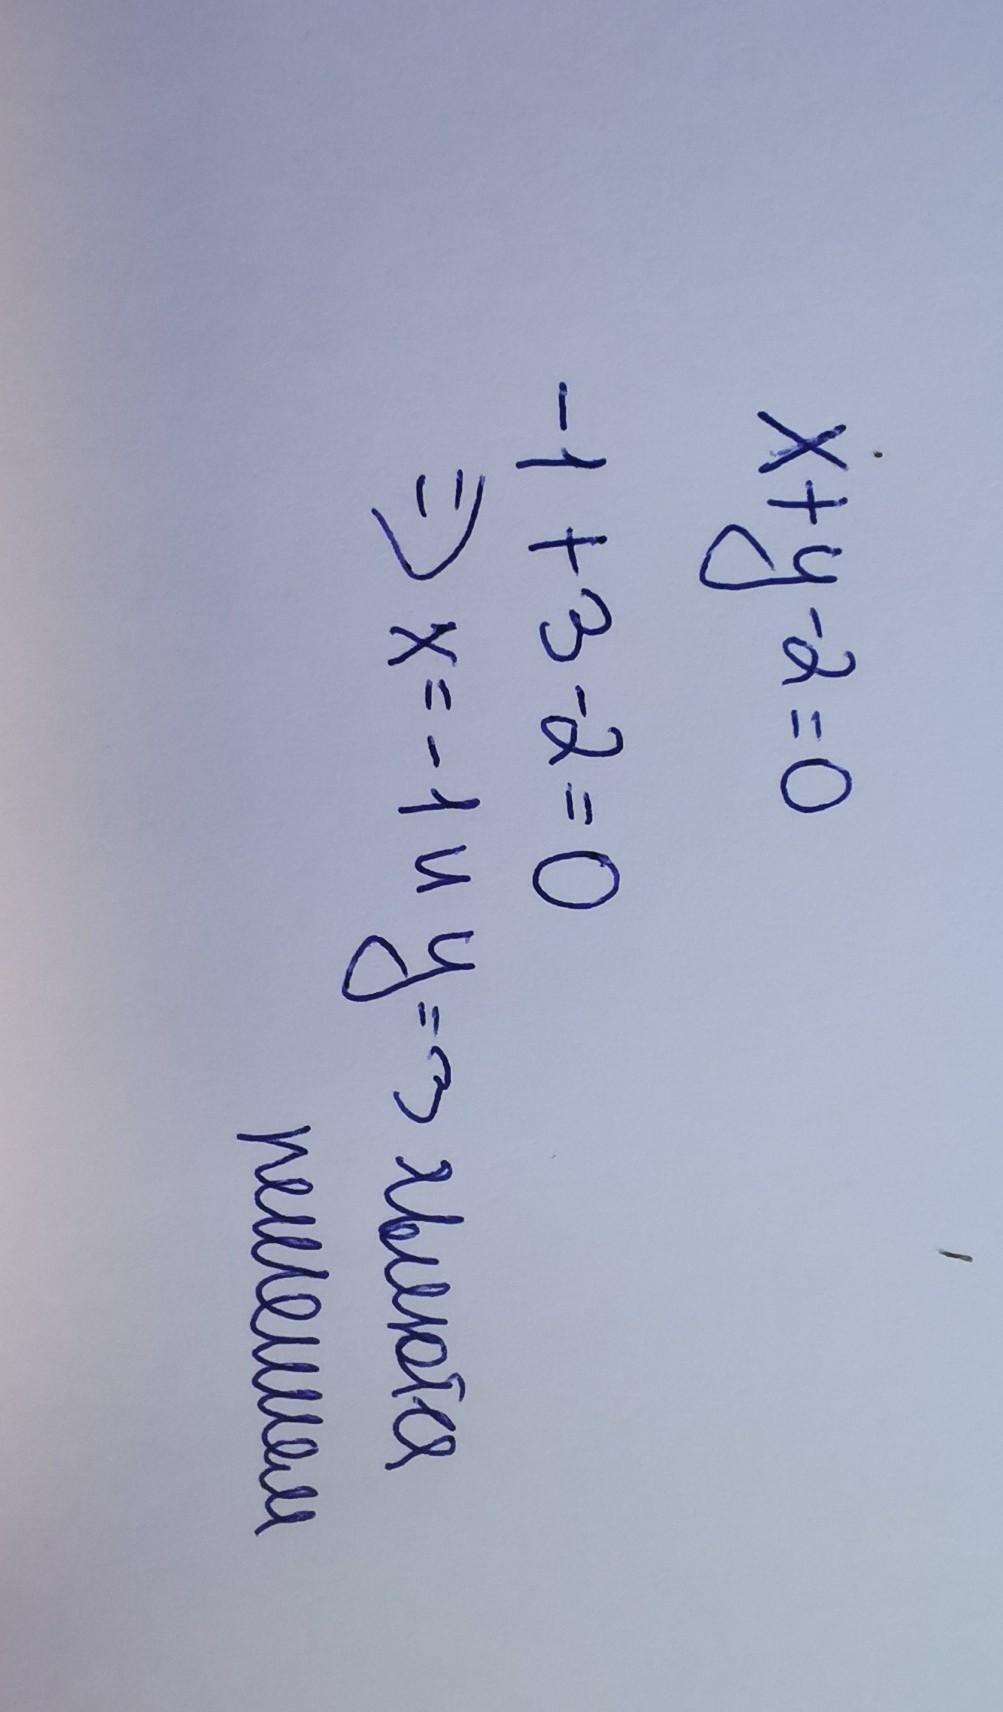 x+y-2=0
-1+3-2=0
⇒ x=-1 и y=3 являются
решением